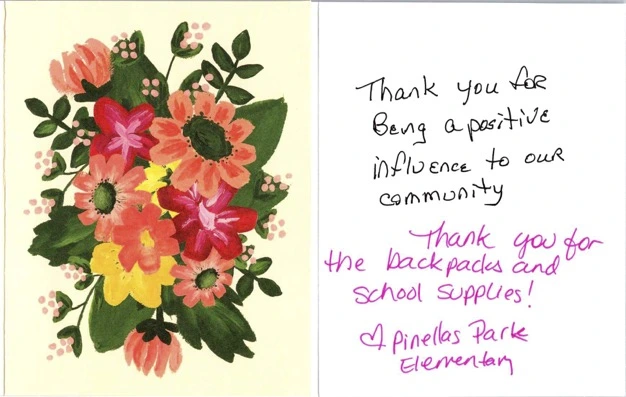 Thank you for
Being a positive
influence to our
community
Thank you for
the backpacks and
school supplies!
♡ Pinellas Park
Elementary